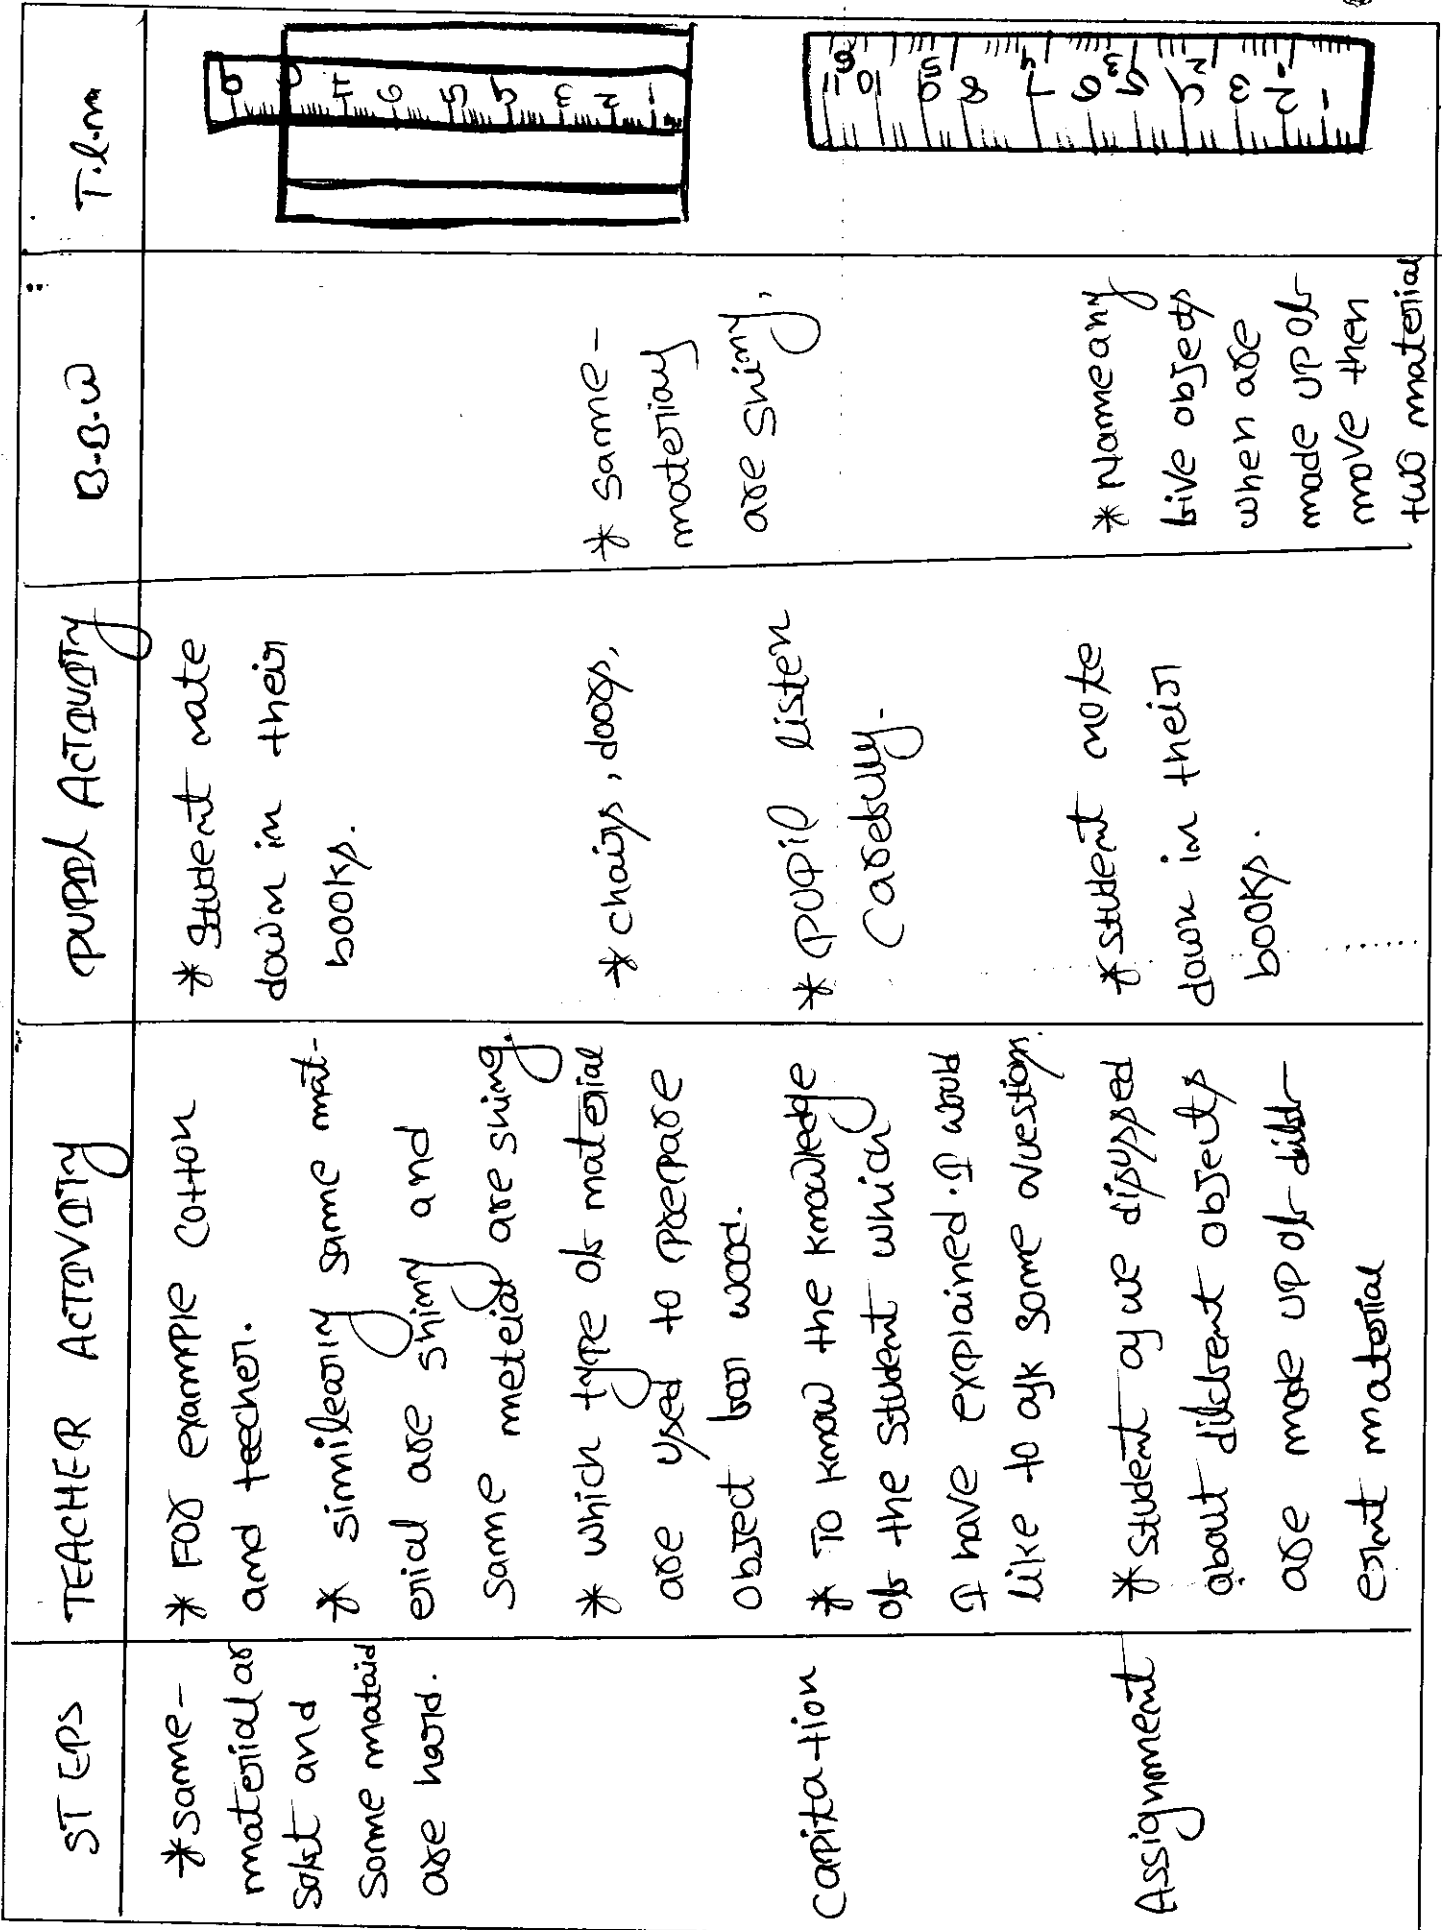 STEPS
TEACHER ACTIVITY
PUPIL ACTIVITY
B.B.W
T.l.m
*same-
material ar
soft and
Some mataid
are hard.
* For example cotton
and teecher.
* similearly same mat-
erial are shiny and
same meteial are shing.
* which type of material
are used to prerpare
object barr wood.
* student nate
down in their
books.
* chairs, doors,
* same-
materiay
are shiny,
9 8 7 6 5 4 3 2 1
capita-tion
* To know the knowledge
of the student which
I have explained. I would
like to ask some questions.
* pupil listen
carefully.
11 10 9 8 7 6 5 4 3 2 1
Assignment
* student as we disussed
about different objects
are made up of diff-
erent material
* student note
down in their
books.
* Name any
five objects
when are
made up of
move then
two material